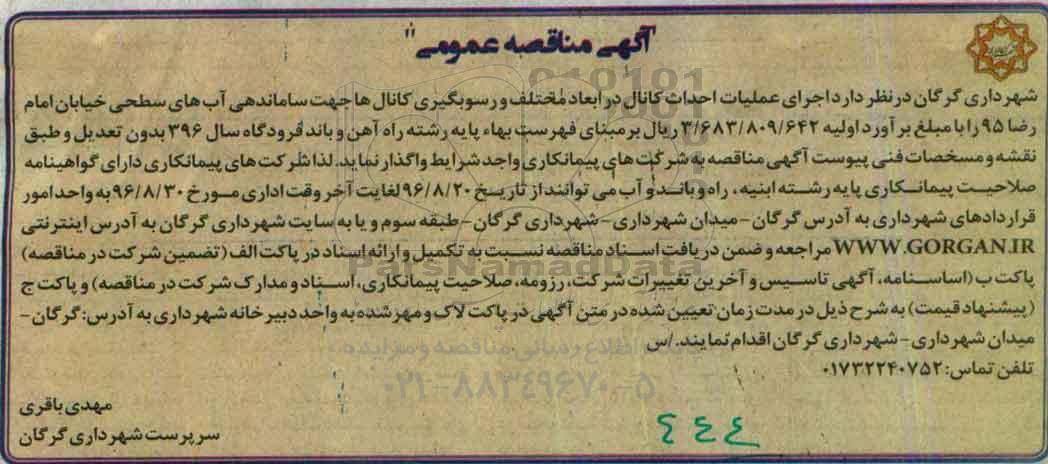 "آگهی مناقصه عمومی"
شهرداری گرگان در نظر دارد اجرای عملیات احداث کانال در ابعاد مختلف و رسوبگیری کانال ها جهت ساماندهی آب های سطحی خیابان امام
رضا ۹۵ را با مبلغ برآورد اولیه ۳/۶۸۳/۸۰۹/۶۴۲ ریال بر مبنای فهرست بهاء پایه رشته راه آهن و باند فرودگاه سال ۳۹۶ بدون تعدیل و طبق
نقشه و مسخصات فنی پیوست آگهی مناقصه به شرکت های پیمانکاری واجد شرایط واگذار نماید. لذا شرکت های پیمانکاری دارای گواهینامه
صلاحیت پیمانکاری پایه رشته ابنیه، راه و باند و آب می توانند از تاریخ ۹۶/۸/۲۰ لغایت آخر وقت اداری مورخ ۹۶/۸/۳۰ به واحد امور
قراردادهای شهرداری به آدرس گرگان - میدان شهرداری - شهرداری گرگان - طبقه سوم و یا به سایت شهرداری گرگان به آدرس اینترنتی
WWW.GORGAN.IR مراجعه و ضمن دریافت اسناد مناقصه نسبت به تکمیل و ارائه اسناد در پاکت الف (تضمین شرکت در مناقصه)
پاکت ب (اساسنامه، آگهی تاسیس و آخرین تغییرات شرکت، رزومه، صلاحیت پیمانکاری، اسناد و مدارک شرکت در مناقصه) و پاکت ج
(پیشنهاد قیمت) به شرح ذیل در مدت زمان تعیین شده در متن آگهی در پاکت لاک و مهر شده به واحد دبیرخانه شهرداری به آدرس: گرگان -
میدان شهرداری - شهرداری گرگان اقدام نمایند. /س
تلفن تماس: ۰۱۷۳۲۲۴۰۷۵۲
مهدی باقری
سرپرست شهرداری گرگان
۴۴۴
ParsNamadData
۰۲۱-۸۸۳۴۹۶۷۰-۵